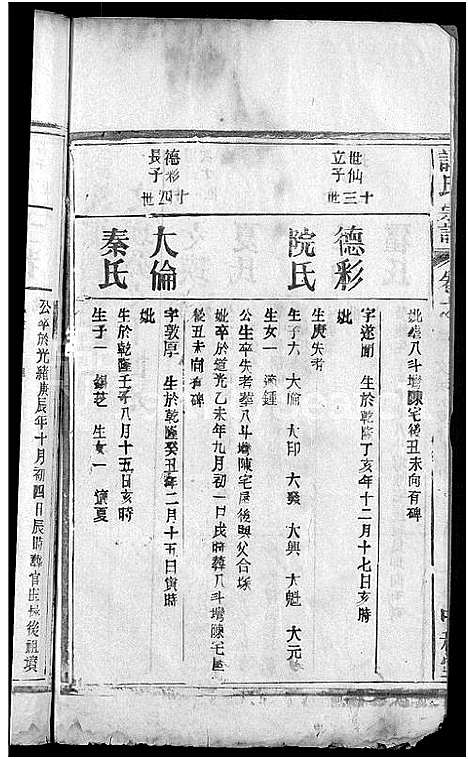 妣葬八斗塆陳宅後丑未向有碑
世仙立子
十三世
德彩
院氏
生於乾隆丁亥年十二月十七日亥時
妣
生庚失考
生子六 大倫 大印 大發 大興 大魁 大元
生女一 適鍾
公生卒失考葬八斗塆陳宅屋後與父合塚
妣卒於道光乙未年九月初一日戌時葬八斗塆陳宅屋
後丑未向有碑
德彩長子
十四世
大倫
秦氏
字敦厚 生於乾隆癸丑年二月十五日寅時
妣
生於乾隆壬子年八月十五日亥時
生子一 錫芝 生女一 適夏
公卒於光緒庚辰年十月初四日辰時葬官庄長後祖墳